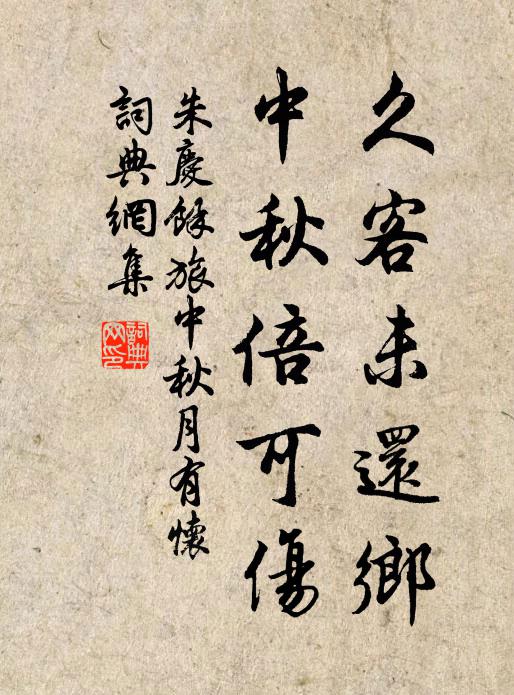 久客未還鄉
中秋倍可傷
朱慶餘旅中秋月有懷
詞典網集
詞典
网印